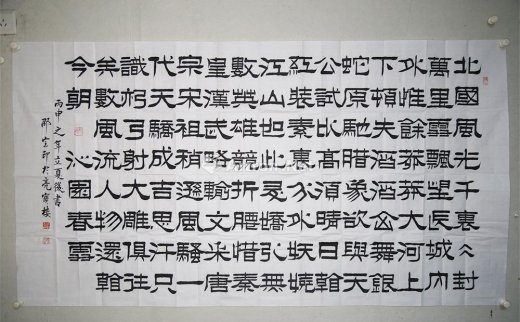 北國風光千裏冰封
萬里雪飄望長城内
外惟餘莽莽大河上
下頓失滔滔山舞銀
蛇原馳腊象欲與天
公試比高須晴日看
紅裝素裹分外妖嬈
江山如此多嬌引無
數英雄競折腰惜秦
皇漢武略輸文采唐
宗宋祖稍遜風騷一
代天驕成吉思汗只
識彎弓射大雕俱往
矣數風流人物還看
今朝 沁園春雪
丙申之年立夏後書